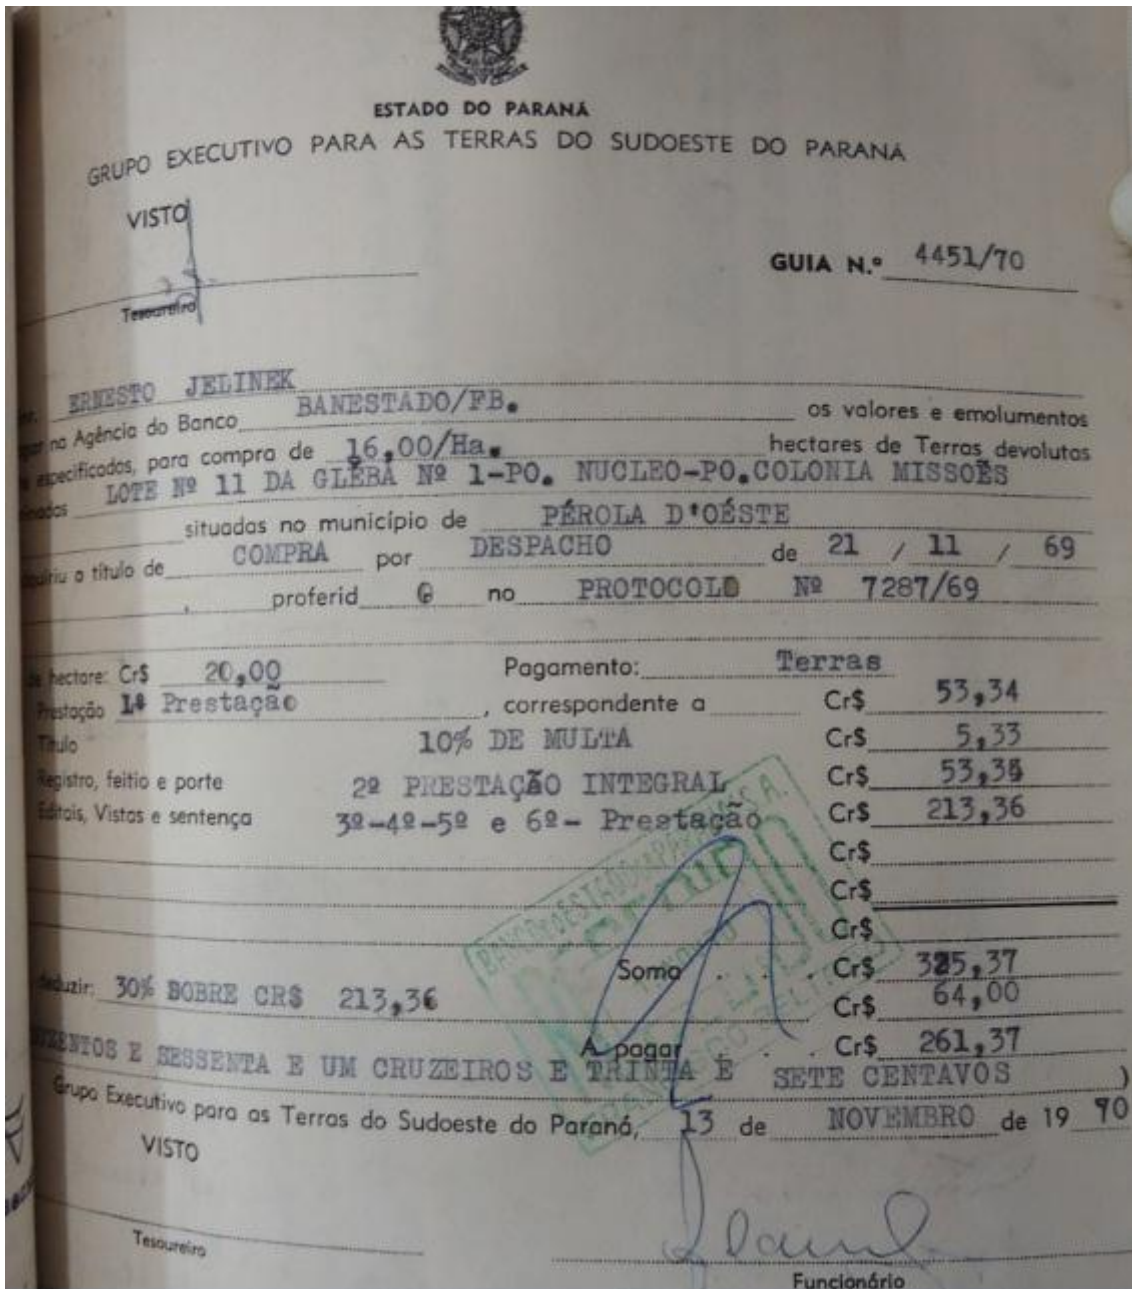 ESTADO DO PARANÁ
GRUPO EXECUTIVO PARA AS TERRAS DO SUDOESTE DO PARANÁ
VISTO
GUIA N.º 4451/70
Tesoureiro
ERNESTO JELINEK
na Agência do Banco BANESTADO/FB. os valores e emolumentos
especificados, para compra de 16,00/Ha. hectares de Terras devolutas
LOTE Nº 11 DA GLÊBA Nº 1-PO. NUCLEO-PO.COLONIA MISSOÊS
situadas no município de PÉROLA D'OÉSTE
a título de COMPRA por DESPACHO de 21 / 11 / 69
, proferid O no PROTOCOLO Nº 7287/69
hectare: Cr$ 20,00 Pagamento: Terras
Prestação 1ª Prestação , correspondente a Cr$ 53,34
Título 10% DE MULTA Cr$ 5,33
Registro, feitio e porte 2º PRESTAÇÃO INTEGRAL Cr$ 53,34
Editais, Vistos e sentença 3º-4º-5º e 6º- Prestação Cr$ 213,36
Cr$
Cr$
Cr$
Soma . . . Cr$ 325,37
deduzir: 30% SOBRE CR$ 213,36 Cr$ 64,00
A pagar . . . Cr$ 261,37
E SESSENTA E UM CRUZEIROS E TRINTA E SETE CENTAVOS )
Grupo Executivo para as Terras do Sudoeste do Paraná, 13 de NOVEMBRO de 19 70
VISTO
Tesoureiro
Funcionário